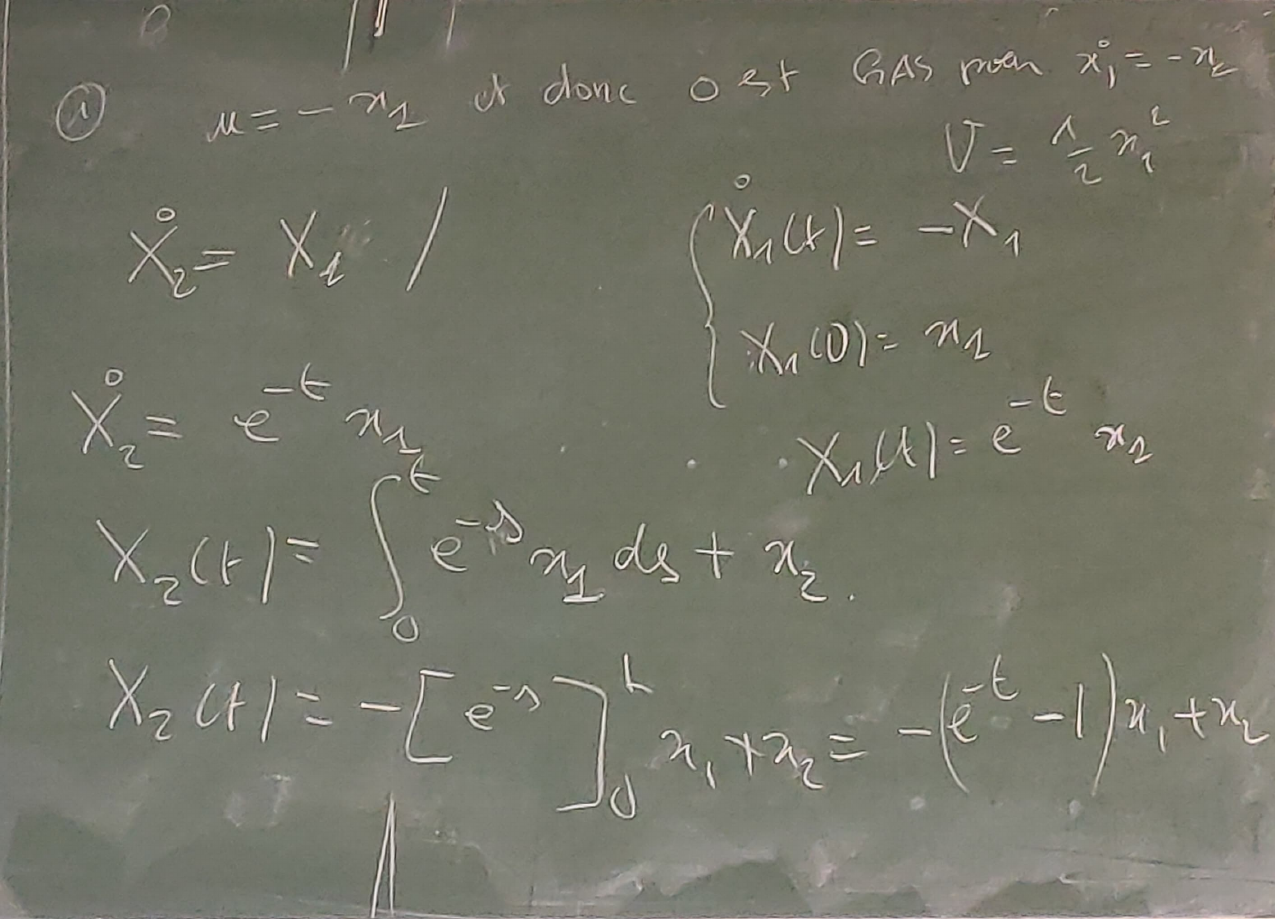 ① u = - x₁ et donc 0 est GAS pour ẋ₁ = - x₁
V = 1/2 x₁²
Ẋ₂ = X₁ /
{ Ẋ₁(t) = - X₁
X₁(0) = x₁
Ẋ₂ = e^{-t} x₁
X₁(t) = e^{-t} x₁
X₂(t) = ∫₀^t e^{-s} x₁ ds + x₂.
X₂(t) = - [e^{-s}]₀^t x₁ + x₂ = - (e^{-t} - 1) x₁ + x₂